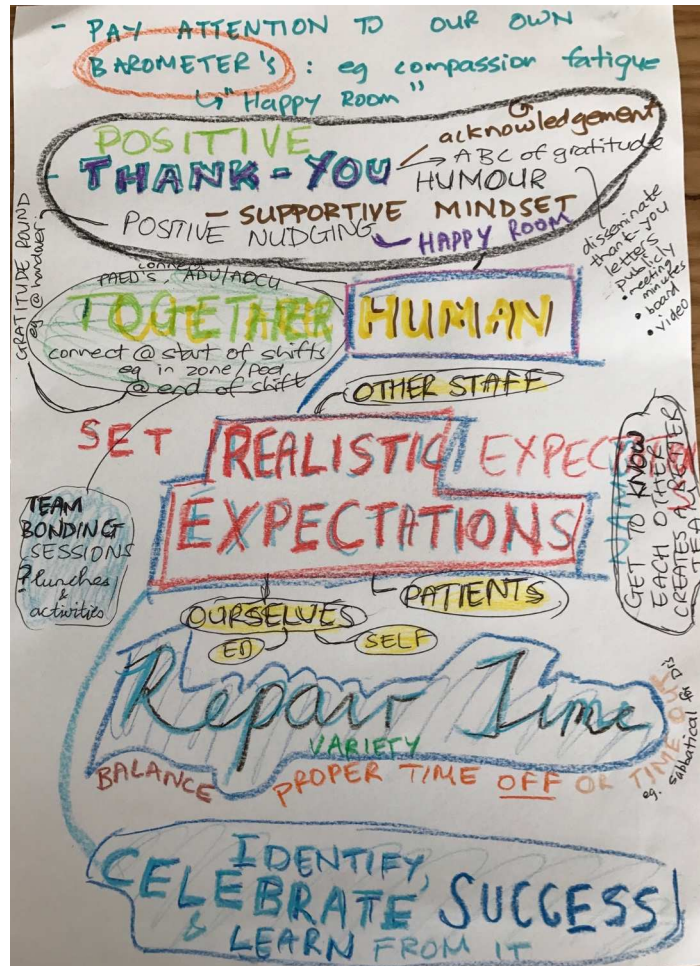 - PAY ATTENTION TO OUR OWN
BAROMETER'S : eg compassion fatigue
↳ "HAPPY ROOM"
POSITIVE
acknowledgement
- THANK-YOU → ABC of gratitude
HUMOUR
- SUPPORTIVE MINDSET
POSITIVE NUDGING
HAPPY ROOM
disseminate
thank-you
letters
publicly
• meeting
minutes
• board
• video
GRATITUDE ROUND
eg @ handover
connect
PAED'S, ADU/AOCU
TOGETHER
connect @ start of shifts
eg in zone/pod
@ end of shift
HUMAN
OTHER STAFF
SET REALISTIC
EXPECTATIONS
TEAM
BONDING
SESSIONS
? lunches
&
activities
GET TO KNOW
EACH OTHER
CREATES A GREATER
PATIENTS
OURSELVES
ED
SELF
Repair Time
VARIETY
BALANCE
PROPER TIME OFF OR TIME OUT
eg. sabbatical
IDENTIFY,
CELEBRATE SUCCESS
& LEARN FROM IT